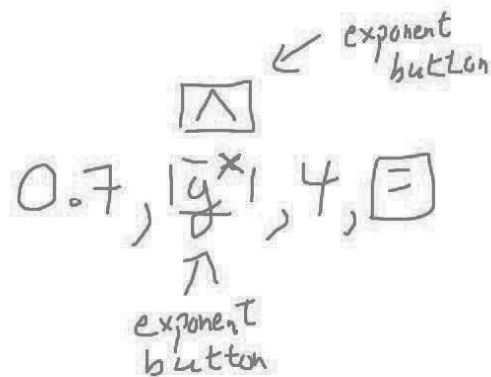 exponent
button
^
0.7, y^x, 4, =
exponent
button